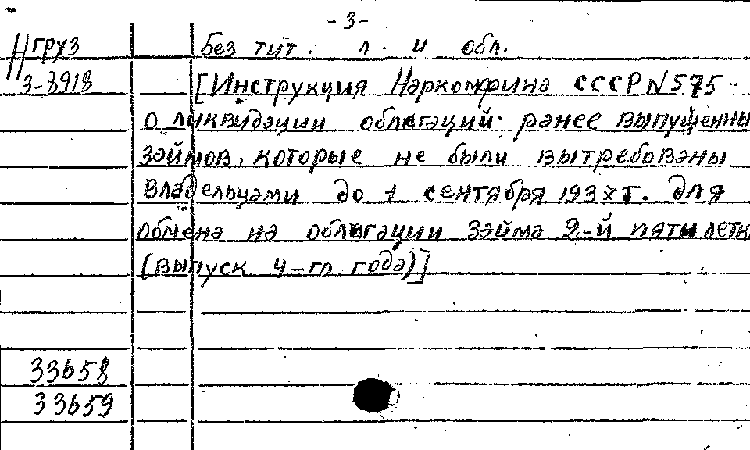 -3-
груз Без тит. л. и обл.
3-3918 [Инструкция Наркомфина СССР N 575
о ликвидации облигаций ранее выпущенны
займов, которые не были вытребованы
владельцами до 1 сентября 193 г. для
обмена на облигации займа 2-й пятилетк
(выпуск 4-го года)]
33658
33659